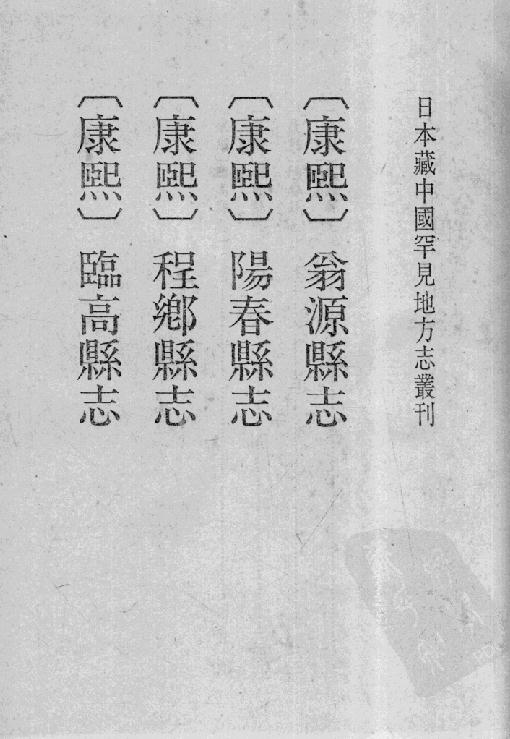 日本藏中國罕見地方志叢刊
〔康熙〕翁源縣志
〔康熙〕陽春縣志
〔康熙〕程鄉縣志
〔康熙〕臨高縣志